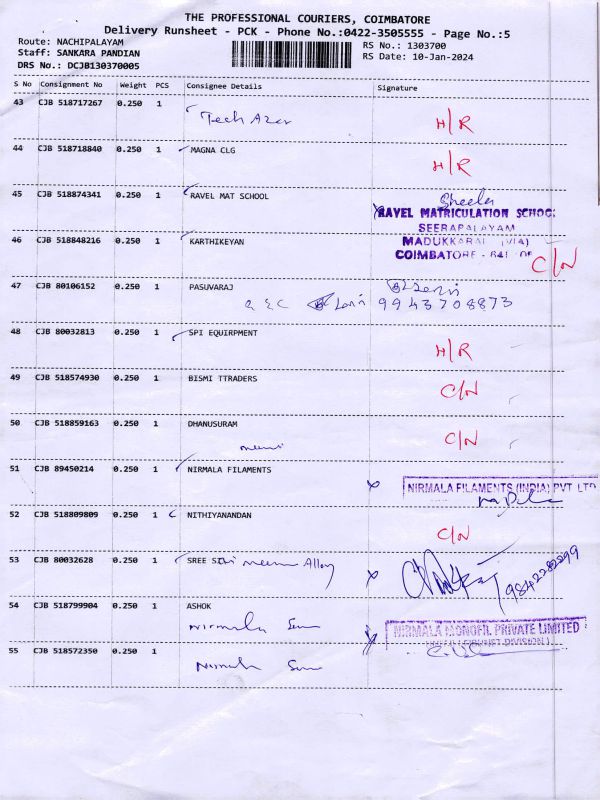 THE PROFESSIONAL COURIERS, COIMBATORE
Delivery Runsheet - PCK - Phone No.:0422-3505555 - Page No.:5
Route: NACHIPALAYAM
RS No.: 1303700
Staff: SANKARA PANDIAN
RS Date: 10-Jan-2024
DRS No.: DCJB130370005
S No Consignment No Weight PCS Consignee Details Signature
43 CJB 518717267 0.250 1
Tech Azer H/R
44 CJB 518718840 0.250 1 MAGNA CLG
H/R
45 CJB 518874341 0.250 1 RAVEL MAT SCHOOL
Sheela
RAVEL MATRICULATION SCHOOL
SEERAPALAYAM
46 CJB 518848216 0.250 1 KARTHIKEYAN
MADUKKARAI (VIA)
COIMBATORE - 641
C/N
47 CJB 80106152 0.250 1 PASUVARAJ
9943708873
48 CJB 80032813 0.250 1 SPI EQUIRPMENT
H/R
49 CJB 518574930 0.250 1 BISMI TTRADERS
C/N
50 CJB 518859163 0.250 1 DHANUSURAM
C/N
51 CJB 89450214 0.250 1 NIRMALA FILAMENTS
NIRMALA FILAMENTS (INDIA) PVT LTD
52 CJB 518809809 0.250 1 NITHIYANANDAN
C/N
53 CJB 80032628 0.250 1 SREE Alloy
54 CJB 518799904 0.250 1 ASHOK
Nirmala
NIRMALA MONOFIL PRIVATE LIMITED
55 CJB 518572350 0.250 1
Nirmala